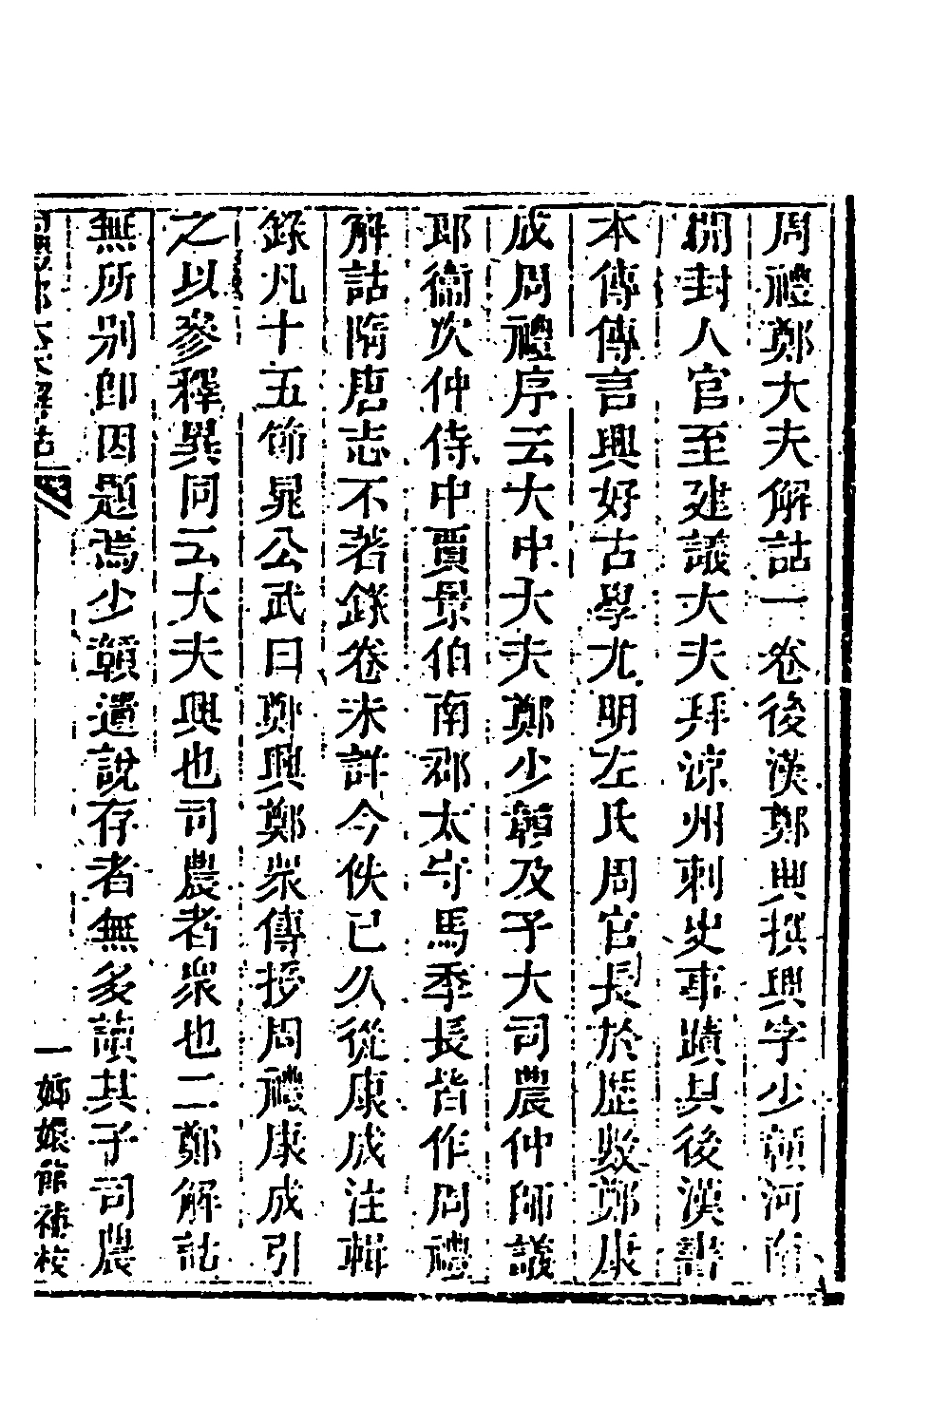 周禮鄭大夫解詁一卷後漢鄭興撰興字少贛河南
開封人官至建議大夫拜涼州刺史事蹟具後漢書
本傳傳言興好古學尤明左氏周官長於歷數鄭康
成周禮序云大中大夫鄭少贛及子大司農仲師議
郎衞次仲侍中賈景伯南郡太守馬季長皆作周禮
解詁隋唐志不著錄卷未詳今佚已久從康成注輯
錄凡十五節晁公武曰鄭興鄭眾傳授周禮康成引
之以參釋異同云大夫興也司農者眾也二鄭解詁
無所別卽因題焉少贛遺說存者無多讀其子司農
周禮鄭大夫解詁 一 嫏嬛館補校